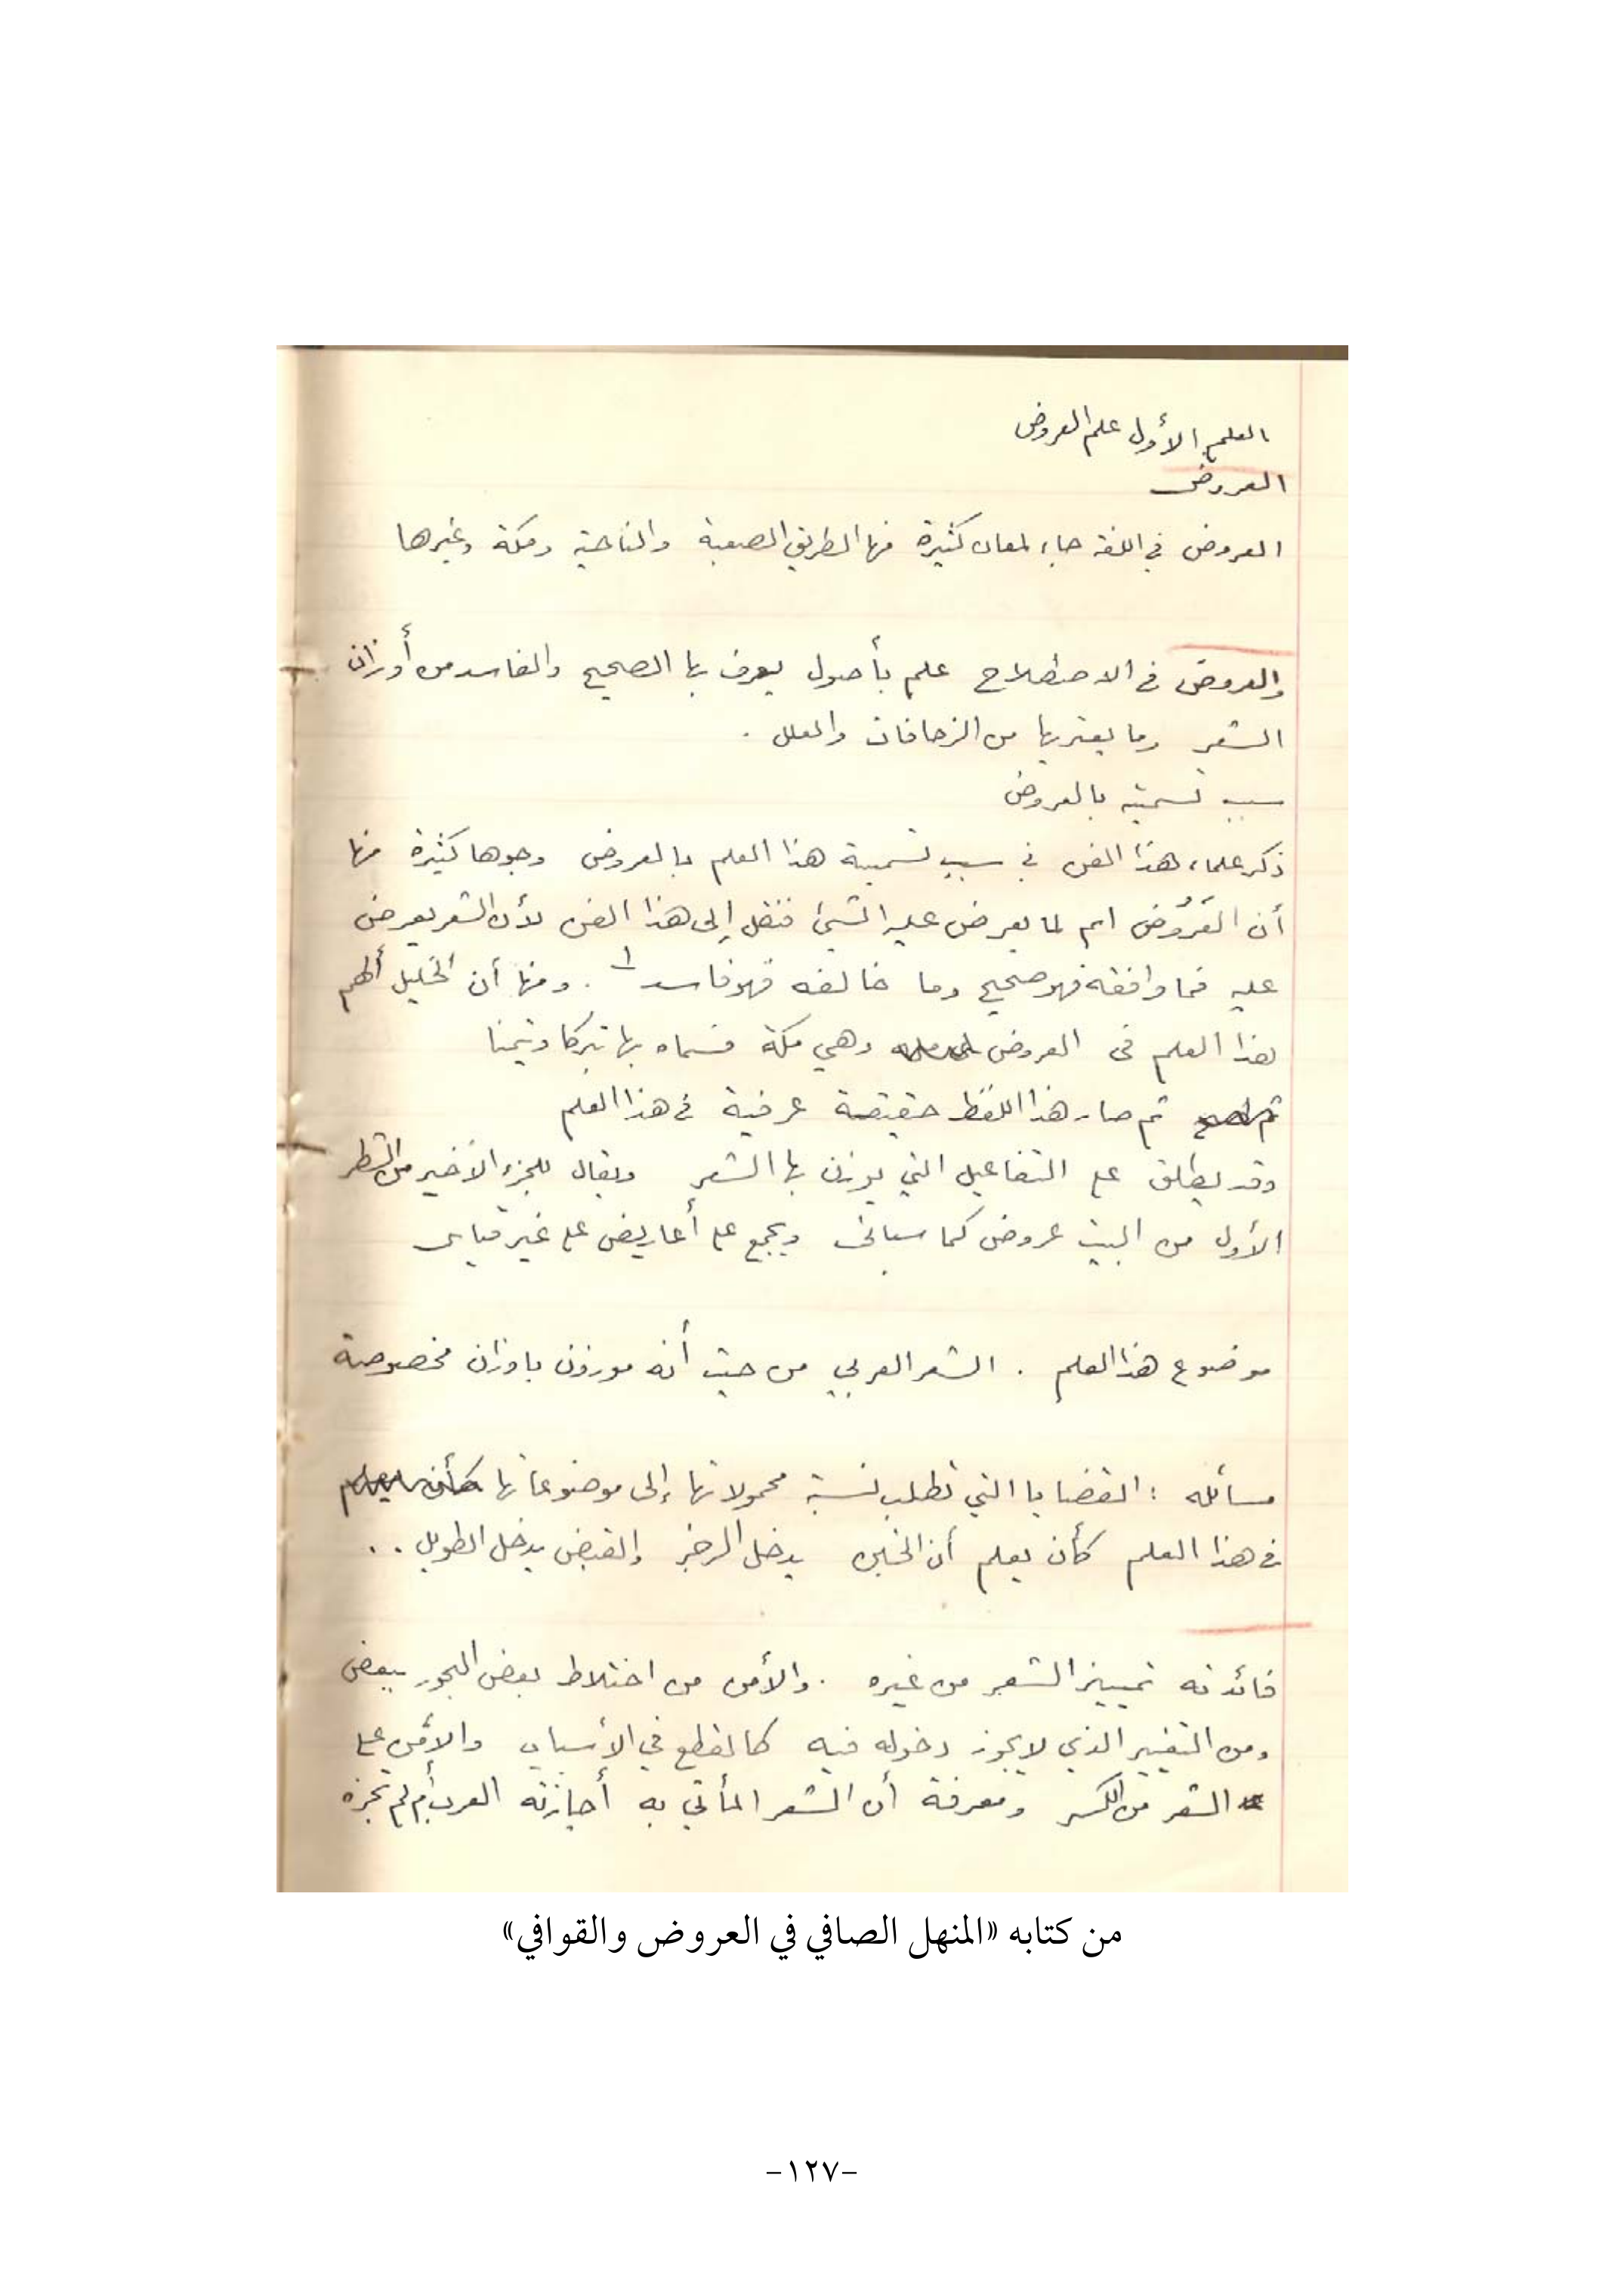 العلم الأول علم العروض
العروض
العروض في اللغة جاء لمعان كثيرة منها الطريق الصعبة والناحية ومكة وغيرها
والعروض في الاصطلاح علم بأصول يعرف بها الصحيح والفاسد من أوزان
الشعر وما يعتريها من الزحافات والعلل .
سبب تسميته بالعروض
ذكر علماء هذا الفن في سبب تسمية هذا العلم بالعروض وجوها كثيرة منها
أن العَرُوض اسم لما يعرض عليه الشيئ فنقل إلى هذا الفن لأن الشعر يعرض
عليه فما وافقه فهو صحيح وما خالفه فهو فاسد ١ . ومنها أن الخليل ألهم
هذا العلم في العروض وهي مكة فسماه بها تبركا وتيمنا
ثم صار هذا اللفظ حقيقة عرفية في هذا العلم
وقد يطلق على التفاعيل التي يوزن بها الشعر ويقال للجزء الأخير من الشطر
الأول من البيت عروض كما سيأتي ويجمع على أعاريض على غير قياس
موضوع هذا العلم . الشعر العربي من حيث أنه موزون باوزان مخصوصة
مسائله : القضايا التي تطلب نسبة محمولاتها إلى موضوعاتها
في هذا العلم كأن يعلم أن الخبن يدخل الرجز والقبض يدخل الطويل . .
فائدته تمييز الشعر من غيره . والأمن من اختلاط بعض البحور ببعض
ومن التغيير الذي لا يجوز دخوله فيه كالقطع في الأسباب والأمن على
الشعر من الكسر ومعرفة أن الشعر المأتي به أجازته العرب أم لم تجزه
من كتابه «المنهل الصافي في العروض والقوافي»
-١٢٧-